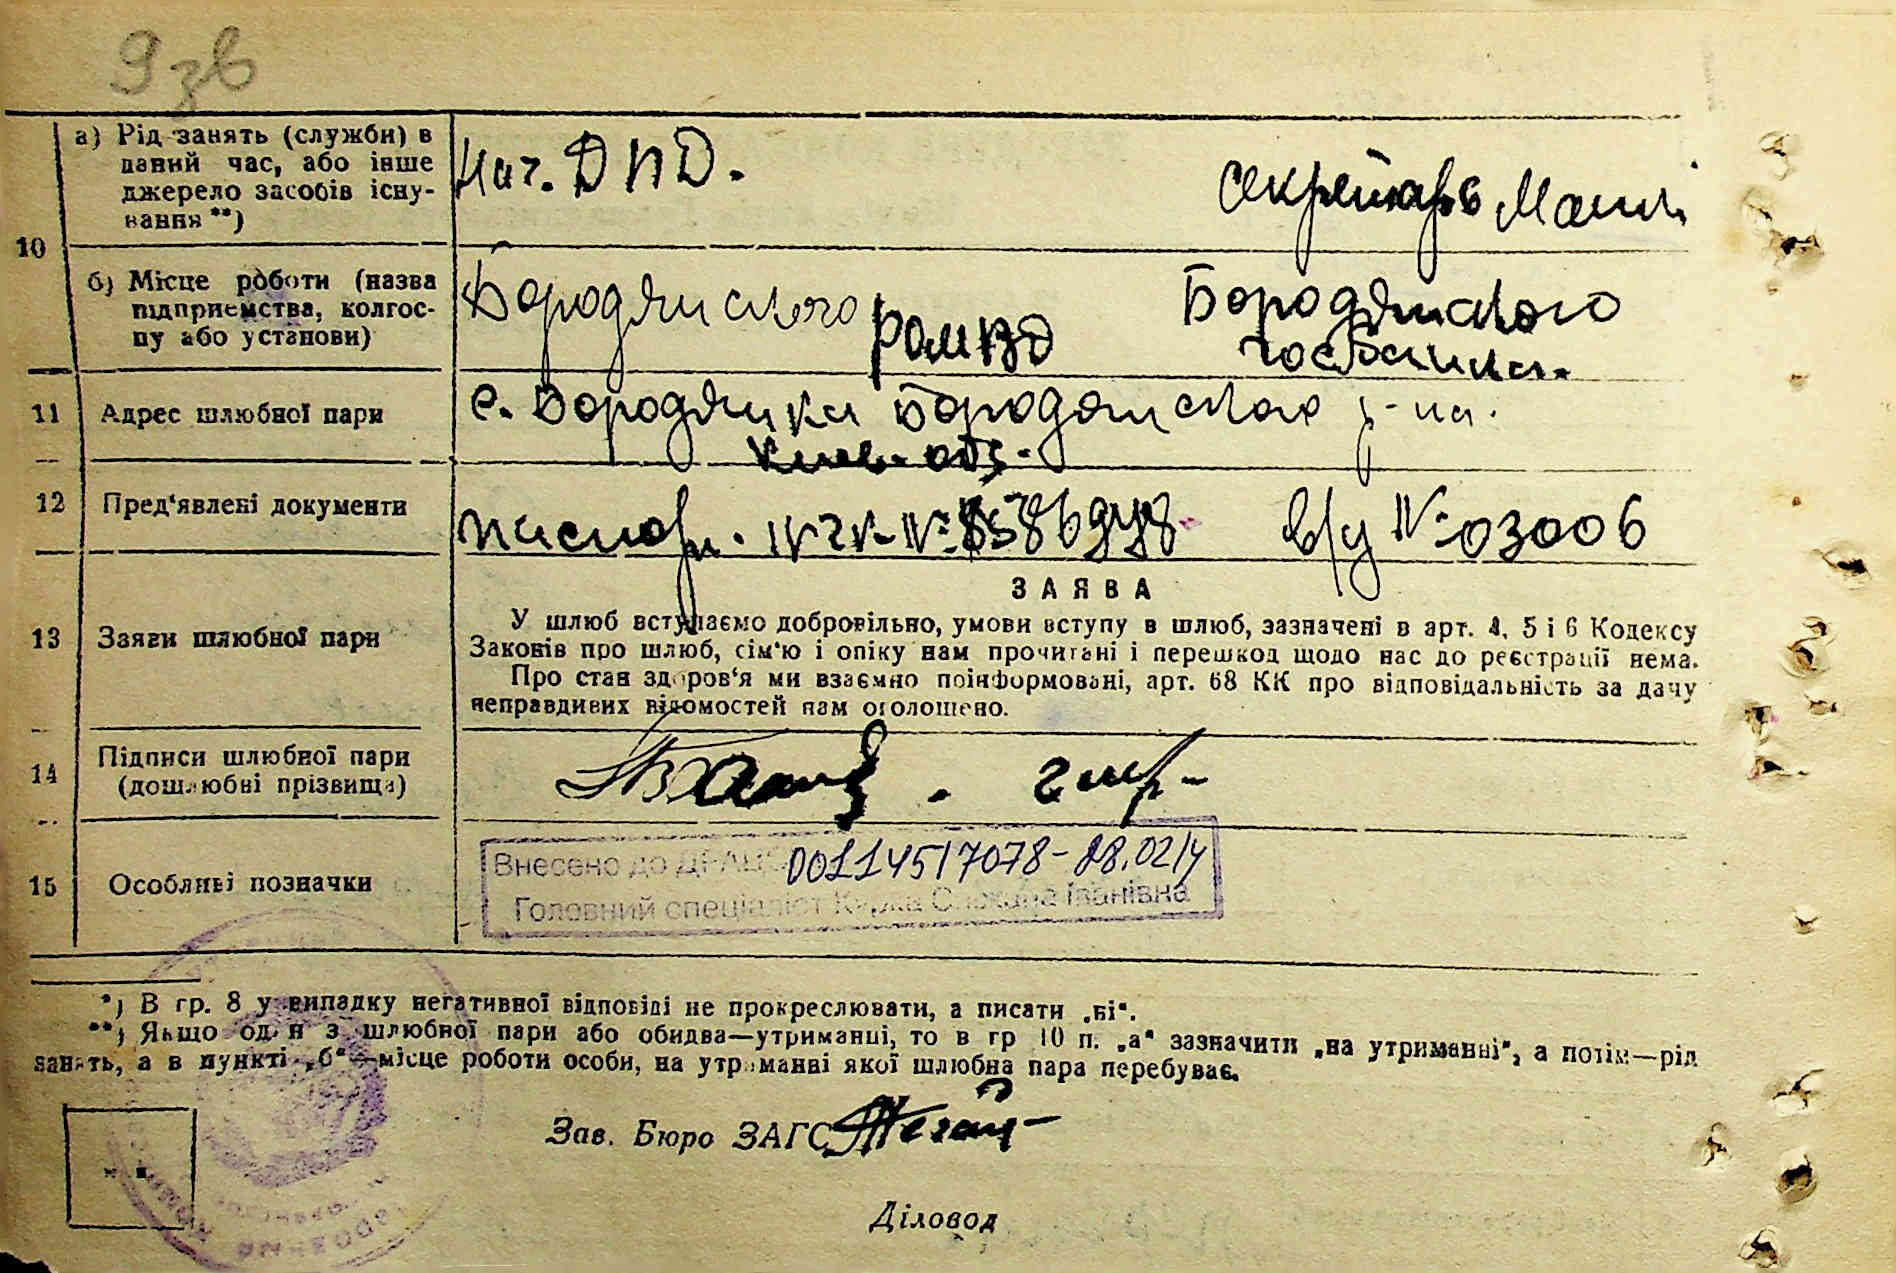 9 зв
10
а) Рід занять (служби) в
даний час, або інше
джерело засобів існу-
вання **)
Нач. ДПД.
Секретарь Маши
б) Місце роботи (назва
підприємства, колгос-
пу або установи)
Бородянского
РОМВД
Бородянского
госбанка.
11 Адрес шлюбної пари
с. Бородянка Бородянского р-на.
Киев. обл.
12 Пред'явлені документи
паспорт. в/у № 03006
ЗАЯВА
13 Заяви шлюбної пари
У шлюб вступаємо добровільно, умови вступу в шлюб, зазначені в арт. 4, 5 і 6 Кодексу
Законів про шлюб, сім'ю і опіку нам прочитані і перешкод щодо нас до реєстрації нема.
Про стан здоров'я ми взаємно поінформовані, арт. 68 КК про відповідальність за дачу
неправдивих відомостей нам оголошено.
14 Підписи шлюбної пари
(дошлюбні прізвища)
15 Особливі позначки
Внесено до ДРАЦС 00114517078-28.02/4
Головний спеціаліст Іванівна
*) В гр. 8 у випадку негативної відповіді не прокреслювати, а писати „ні".
**) Якщо один з шлюбної пари або обидва—утриманці, то в гр 10 п. „а" зазначити „на утриманні", а потім—рід
занять, а в пункті „б"—місце роботи особи, на утриманні якої шлюбна пара перебуває.
Зав. Бюро ЗАГС
Діловод